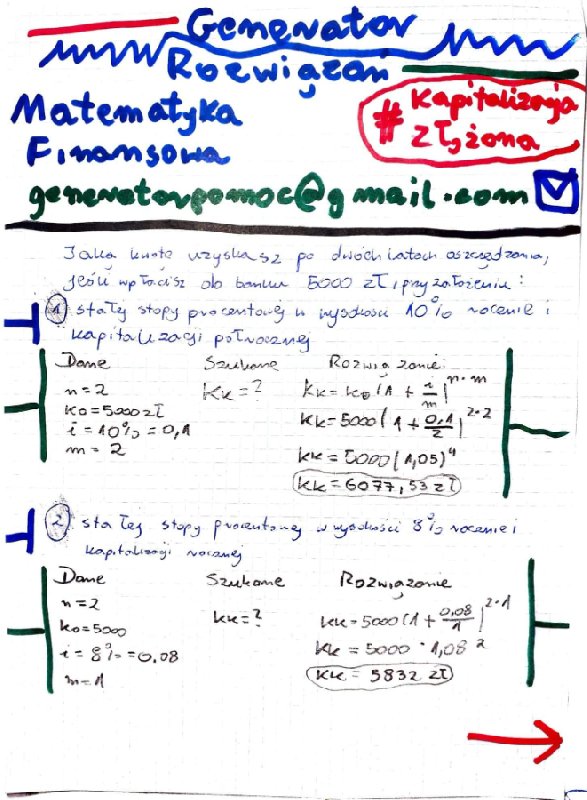 Generator
Rozwiązań
Matematyka
Finansowa
# Kapitalizacja
złożona
generatorpomoc@gmail.com
Jaką kwotę uzyskasz po dwóch latach oszczędzania,
jeśli wpłacisz do banku 5000 zł, przy założeniu:
1 stałej stopy procentowej w wysokości 10% rocznie i
kapitalizacji półrocznej
Dane
n = 2
K0 = 5000 zł
i = 10% = 0,1
m = 2
Szukane
Kk = ?
Rozwiązanie:
Kk = K0 (1 + i/m)^n·m
Kk = 5000 (1 + 0,1/2)^2·2
Kk = 5000 (1,05)^4
Kk = 6077,53 zł
2. stałej stopy procentowej w wysokości 8% rocznie i
kapitalizacji rocznej
Dane
n = 2
K0 = 5000
i = 8% = 0.08
m = 1
Szukane
Kk = ?
Rozwiązanie
Kk = 5000 (1 + 0,08/1)^2·1
Kk = 5000 · 1,08^2
Kk = 5832 zł